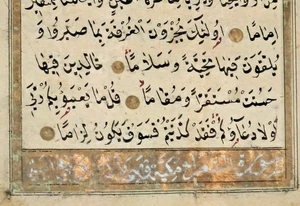 إِمَامًا أُولَٰئِكَ يُجْزَوْنَ الْغُرْفَةَ بِمَا صَبَرُوا وَ
يُلَقَّوْنَ فِيهَا تَحِيَّةً وَسَلَامًا خَالِدِينَ فِيهَا
حَسُنَتْ مُسْتَقَرًّا وَمُقَامًا قُلْ مَا يَعْبَؤُا بِكُمْ رَبِّي
لَوْلَا دُعَاؤُكُمْ فَقَدْ كَذَّبْتُمْ فَسَوْفَ يَكُونُ لِزَامًا